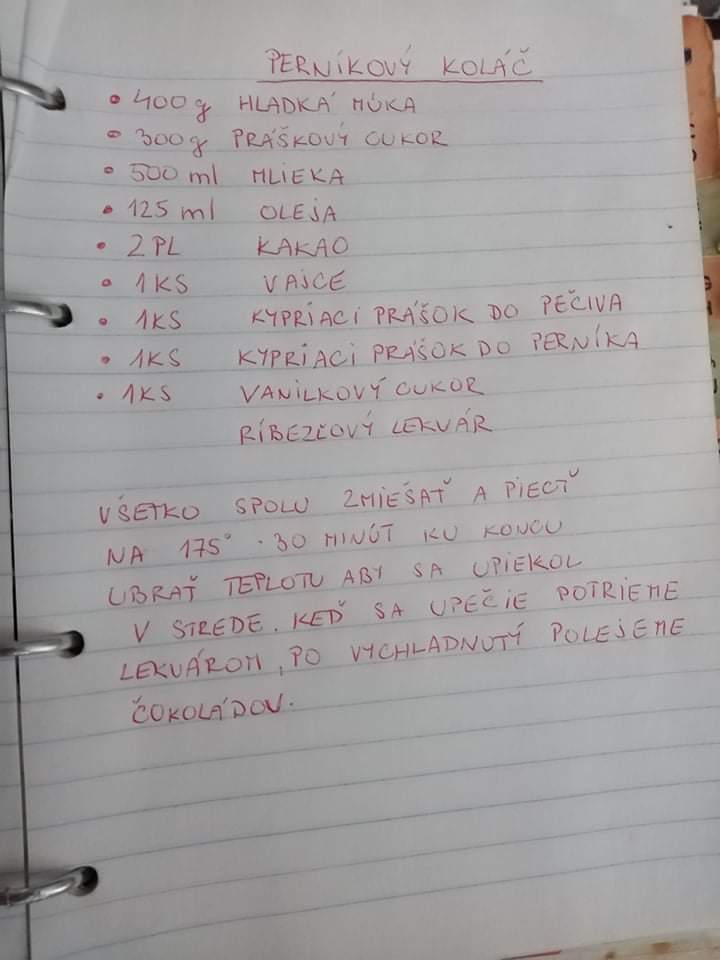 PERNÍKOVÝ KOLÁČ
• 400g HLADKÁ MÚKA
• 300g PRÁŠKOVÝ CUKOR
• 500 ml MLIEKA
• 125 ml OLEJA
• 2 PL KAKAO
• 1KS VAJCE
• 1KS KYPRIACI PRÁŠOK DO PEČIVA
• 1KS KYPRIACI PRÁŠOK DO PERNÍKA
• 1KS VANILKOVÝ CUKOR
RÍBEZĽOVÝ LEKVÁR
VŠETKO SPOLU ZMIEŠAŤ A PIECŤ
NA 175° . 30 MINÚT KU KONCU
UBRAŤ TEPLOTU ABY SA UPIEKOL
V STREDE. KEĎ SA UPEČIE POTRIEME
LEKVÁROM, PO VYCHLADNUTÝ POLEJEME
ČOKOLÁDOU.